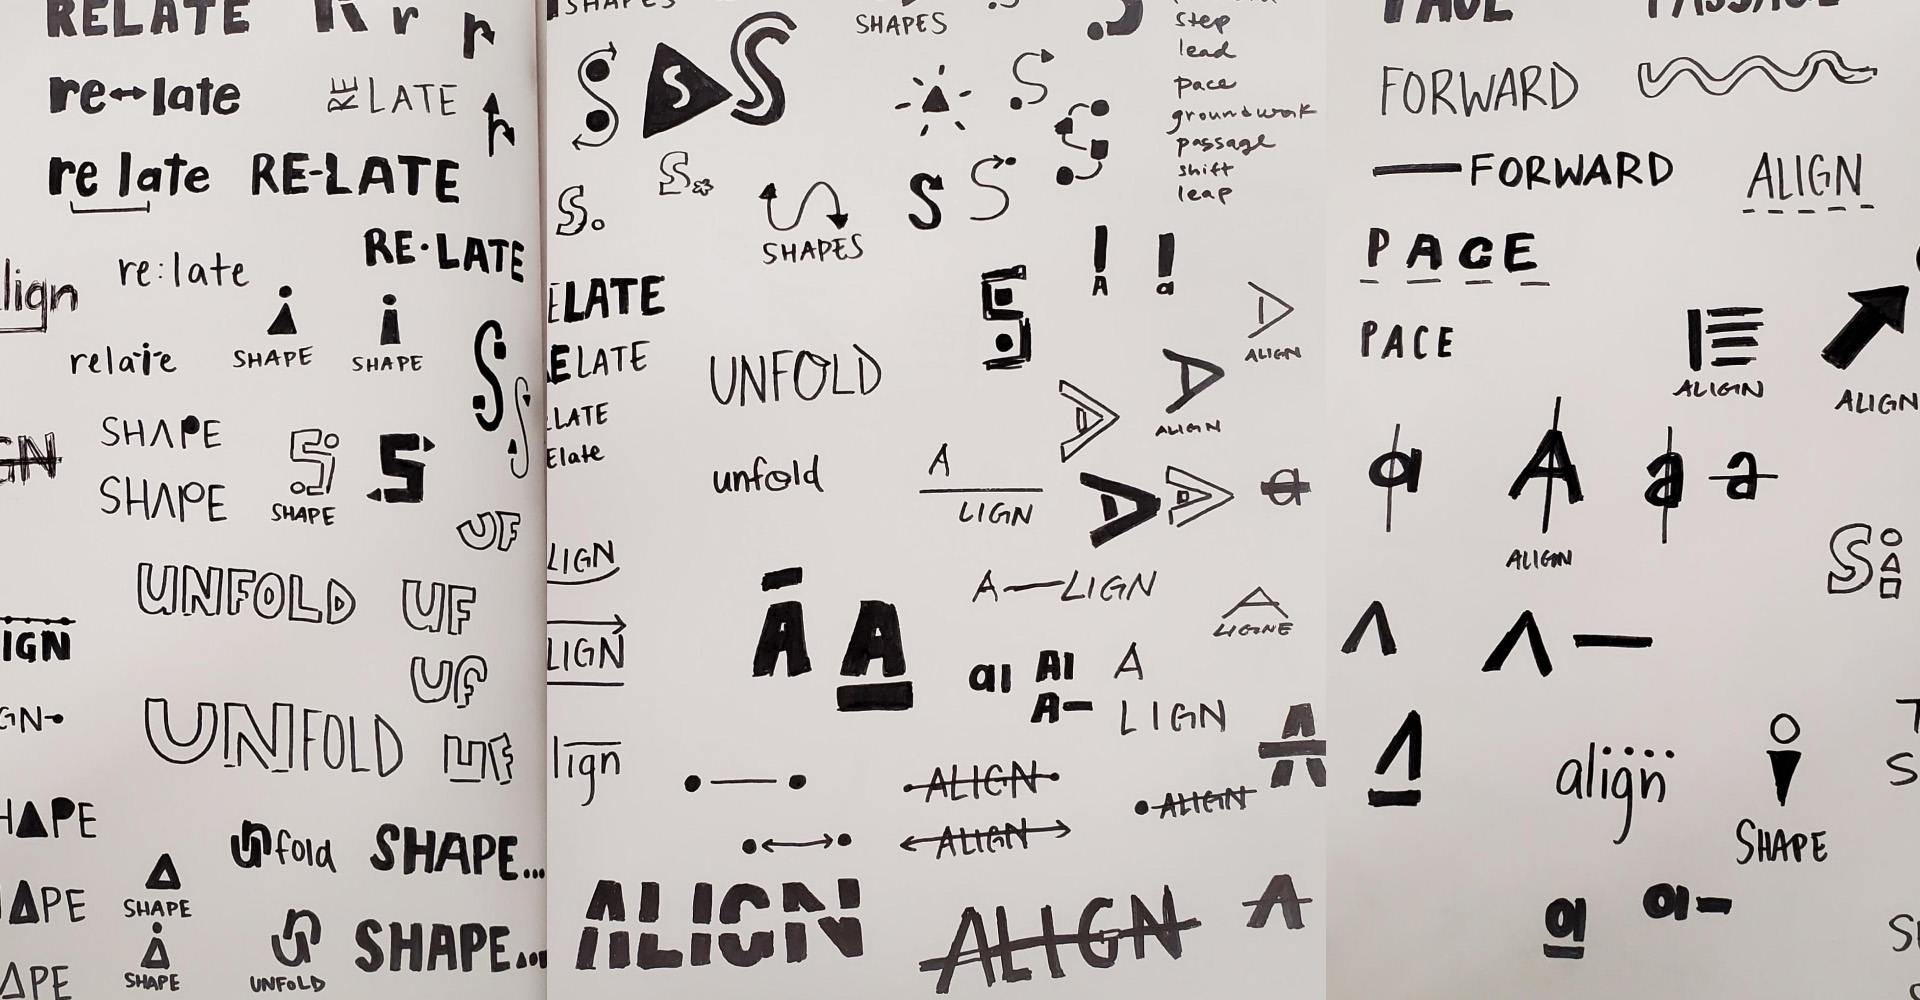 RELATE
R r r
re↔late
RE LATE
re late RE-LATE
RE·LATE
lign
re:late
relate
SHAPE
SHAPE
S
GN
SHAPE
SHAPE
S
SHAPE
S
UF
UNFOLD
UF
IGN
UF
GN
UNFOLD
UF
HAPE
unfold
SHAPE...
APE
SHAPE
UNFOLD
SHAPE...
APE
SHAPE
SHAPES
S
S
S
S
S
SHAPES
S S
SHAPES
S
S
step
lead
pace
groundwork
passage
shift
leap
ELATE
ELATE
LATE
Elate
UNFOLD
unfold
S
A
a
ALIGN
ALIGN
A
LIGN
a
LIGN
LIGN
lign
A A
A—LIGN
al Al
A-
A
LIGN
ALIGN
ALIGN
ALIGN
ALIGN
ALIGN
A
A
PACE
PASSAGE
FORWARD
—FORWARD
ALIGN
PACE
PACE
ALIGN
ALIGN
a A a a
ALIGN
S
align
SHAPE
a a-